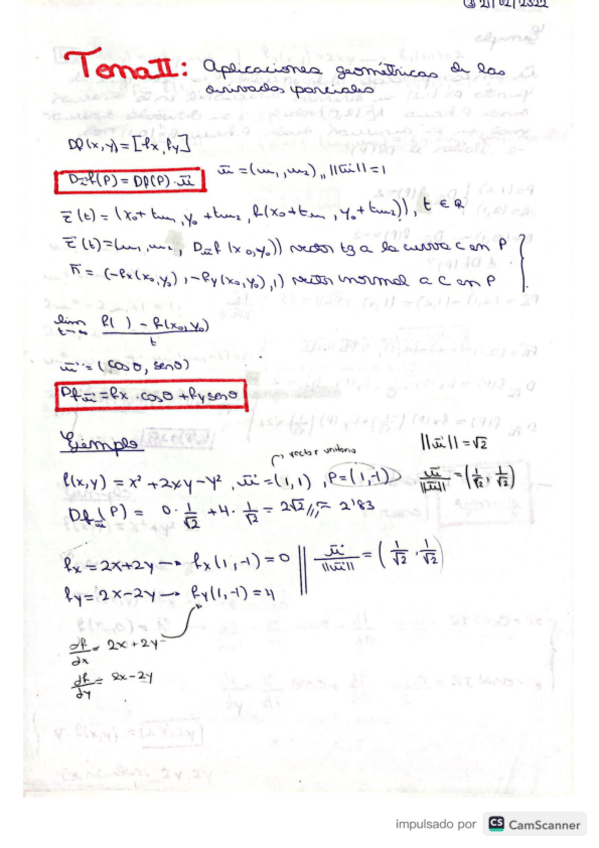 21/02/2022
Tema II: Aplicaciones geométricas de las
derivadas parciales
Df(x,y)=[fx,fy]
Dūf(P)=Df(P)·ū ū=(u₁,u₂),, ||ū||=1
r̄(t)=(x₀+tu₁, y₀+tu₂, f(x₀+tu₁, y₀+tu₂)), t∈R
r̄(t)=(u₁,u₂, Dūf(x₀,y₀)) vector tg a la curva C en P
n̄=(-fx(x₀,y₀),-fy(x₀,y₀),1) vector normal a C en P
lim f( ) - f(x₀,y₀)
t
ū=(cosθ, senθ)
Dfū=fx·cosθ+fy senθ
Ejemplo
vector unitario
||ū||=√2
f(x,y)=x²+2xy-y², ū=(1,1), P=(1,-1) ū/||ū||=(1/√2, 1/√2)
Dfū(P)=0·1/√2+4·1/√2=2√2 ≈ 2'83
fx=2x+2y→fx(1,-1)=0 || ū/||ū||=(1/√2, 1/√2)
fy=2x-2y→fy(1,-1)=4
df/dx=2x+2y
df/dy=2x-2y
impulsado por CS CamScanner